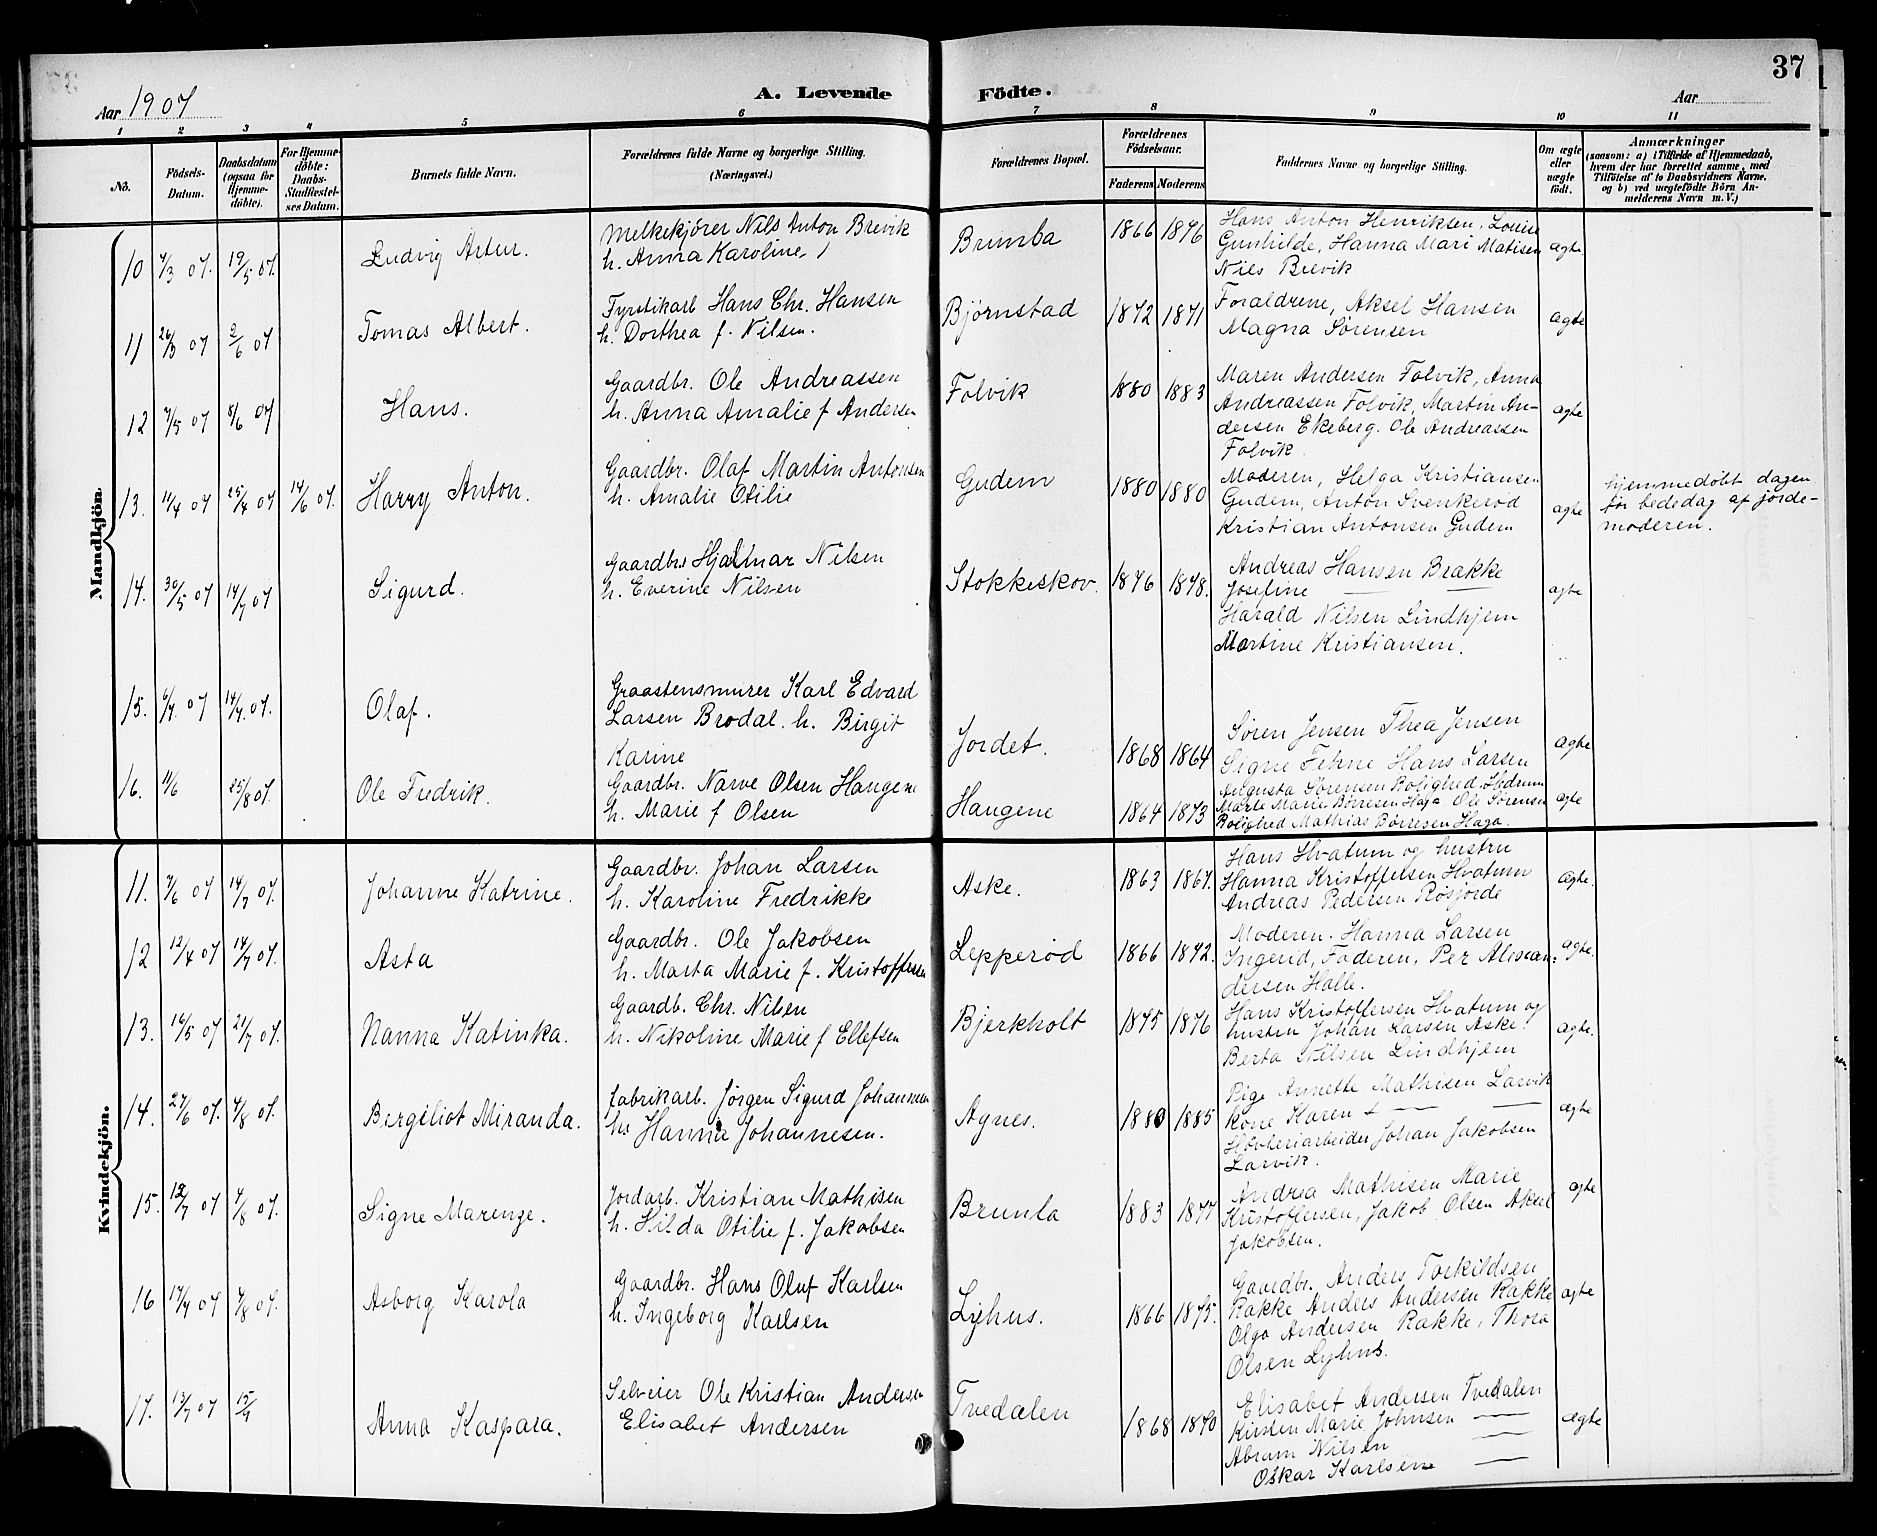 37
Aar 1907
A. Levende Födte.
Aar
1 2 3 4 5 6 7 8 9 10 11
No.
Födsels-Datum.
Daabsdatum (ogsaa for Hjemme-döbte).
For Hjemme-döbte: Daabs-Stadfæstel-ses Datum.
Barnets fulde Navn.
Forældrenes fulde Navne og borgerlige Stilling. (Næringsvei.)
Forældrenes Bopæl.
Forældrenes Födselsaar.
Faderens Moderens
Faddernes Navne og borgerlige Stilling.
Om ægte eller uægte födt.
Anmærkninger
(saasom: a) i Tilfælde af Hjemmedaab, hvem der har forrettet samme, med Tilföielse af to Daabsvidners Navne, og b) ved uægtefödte Börn An-melderens Navn m. V.)
Mandkjön.
10 7/3 07. 19/5 07. Ludvig Artur.
Melkekjører Nils Anton Brevik
h. Anna Karoline
Brunla 1866 1876
Hans Anton Henriksen, Louise
Gunhilde, Hanna Mari Matisen
Nils Brevik
ægte
11 26/3 07 2/6 07 Tomas Albert.
Fyrstikarb Hans Chr. Hansen
h. Dorthea f. Nilsen.
Bjørnstad 1872 1871
Forældrene, Aksel Hansen
Magna Sørensen
ægte
12 7/5 07 8/6 07 Hans.
Gaardbr. Ole Andreassen
h. Anna Amalie f Andersen
Folvik 1880 1883
Maren Andersen Folvik, Anna
Andreassen Folvik, Martin An-
dersen Ekeberg. Ole Andreassen
Folvik.
ægte
13. 11/4 07 25/4 07 14/6 07. Harry Anton.
Gaardbr. Olaf Martin Antonsen
h. Amalie Otilie
Gudem 1880 1880
Moderen, Helga Kristiansen
Gudem, Anton Svenkerød
Kristian Antonsen Gudem
ægte
hjemmedøbt dagen
før bededag af jorde-
moderen.
14. 30/5 07 14/7 07 Sigurd.
Gaardbr. Hjalmar Nilsen
h. Everine Nilsen
Stokkeskov. 1876 1878.
Andreas Hansen Brakke
Josefine — —
Harald Nilsen Lindhjem
Martine Kristiansen.
ægte
15. 6/4. 07 14/7. 07. Olaf.
Graastensmurer Karl Edvard
Larsen Brodal. h. Birgit
Karine
Jordet. 1868 1864
Søren Jensen Thea Jensen
Signe Fehne Hans Larsen
ægte
16. 11/6 25/8 07. Ole Fredrik.
Gaardbr. Narve Olsen Hangene
h. Marie f Olsen
Hangene 1864 1873
Augusta Sørensen Rolighed. Hedrum
Marte Marie Børresen Haga Ole Sørensen
Rolighed Mathias Børresen Haga.
ægte
Kvindekjön.
11. 7/6 07 14/7 07. Johanne Katrine.
Gaardbr. Johan Larsen
h. Karoline Fredrikke
Aske. 1863 1867.
Hans Hvatum og hustru
Hanna Kristoffelsen Hvatum
Andreas Pedersen Røsjorde
ægte.
12 12/4 07 14/7 07. Asta
Gaardbr. Ole Jakobsen
h. Marta Marie f. Kristoffersen
Lepperød 1866 1872.
Moderen. Hanna Larsen
Ingerid, Faderen. Per Alexan-
dersen Halle.
ægte.
13. 14/5 07 21/7 07. Nanna Katinka.
Gaardb. Chr. Nilsen
h. Nikoline Marie f Ellefsen
Bjerkholt 1875 1876
Hans Kristoffersen Hvatum og
hustru Johan Larsen Aske.
Berta Nilsen Lindhjem
ægte.
14. 27/6 07. 4/8 07. Bergliot Miranda.
fabrikarb. Jørgen Sigurd Johannesen
h. Hanna Johannesen.
Agnes. 1880 1885
Pige Annette Mathisen Larvik
Kone Karen — —
Høvleriarbeider Johan Jakobsen
Larvik.
ægte
15. 12/7 07 4/8 07. Signe Marenge.
Jordarb. Kristian Mathisen
h. Hilda Otilie f. Jakobsen
Brunla 1883 1877
Andrea Mathisen Marie
Kristoffersen, Jakob Olsen Aksel
Jakobsen.
ægte
16 17/4 07 4/8 07. Asborg Karola
Gaardbr. Hans Oluf Karlsen
h. Ingeborg Karlsen
Lyhus. 1866 1875.
Gaardbr. Anders Torkildsen
Rakke Anders Andersen Rakke
Olga Andersen Rakke, Thora
Olsen Lyhus.
ægte
17. 13/7 07 15/9 Anna Kaspara.
Selveier Ole Kristian Andersen
Elisabet Andersen
Tvedalen 1868 1870
Elisabet Andersen Tvedalen
Kirsten Marie Johnsen —
Abram Nilsen —
Oskar Karlsen —
ægte